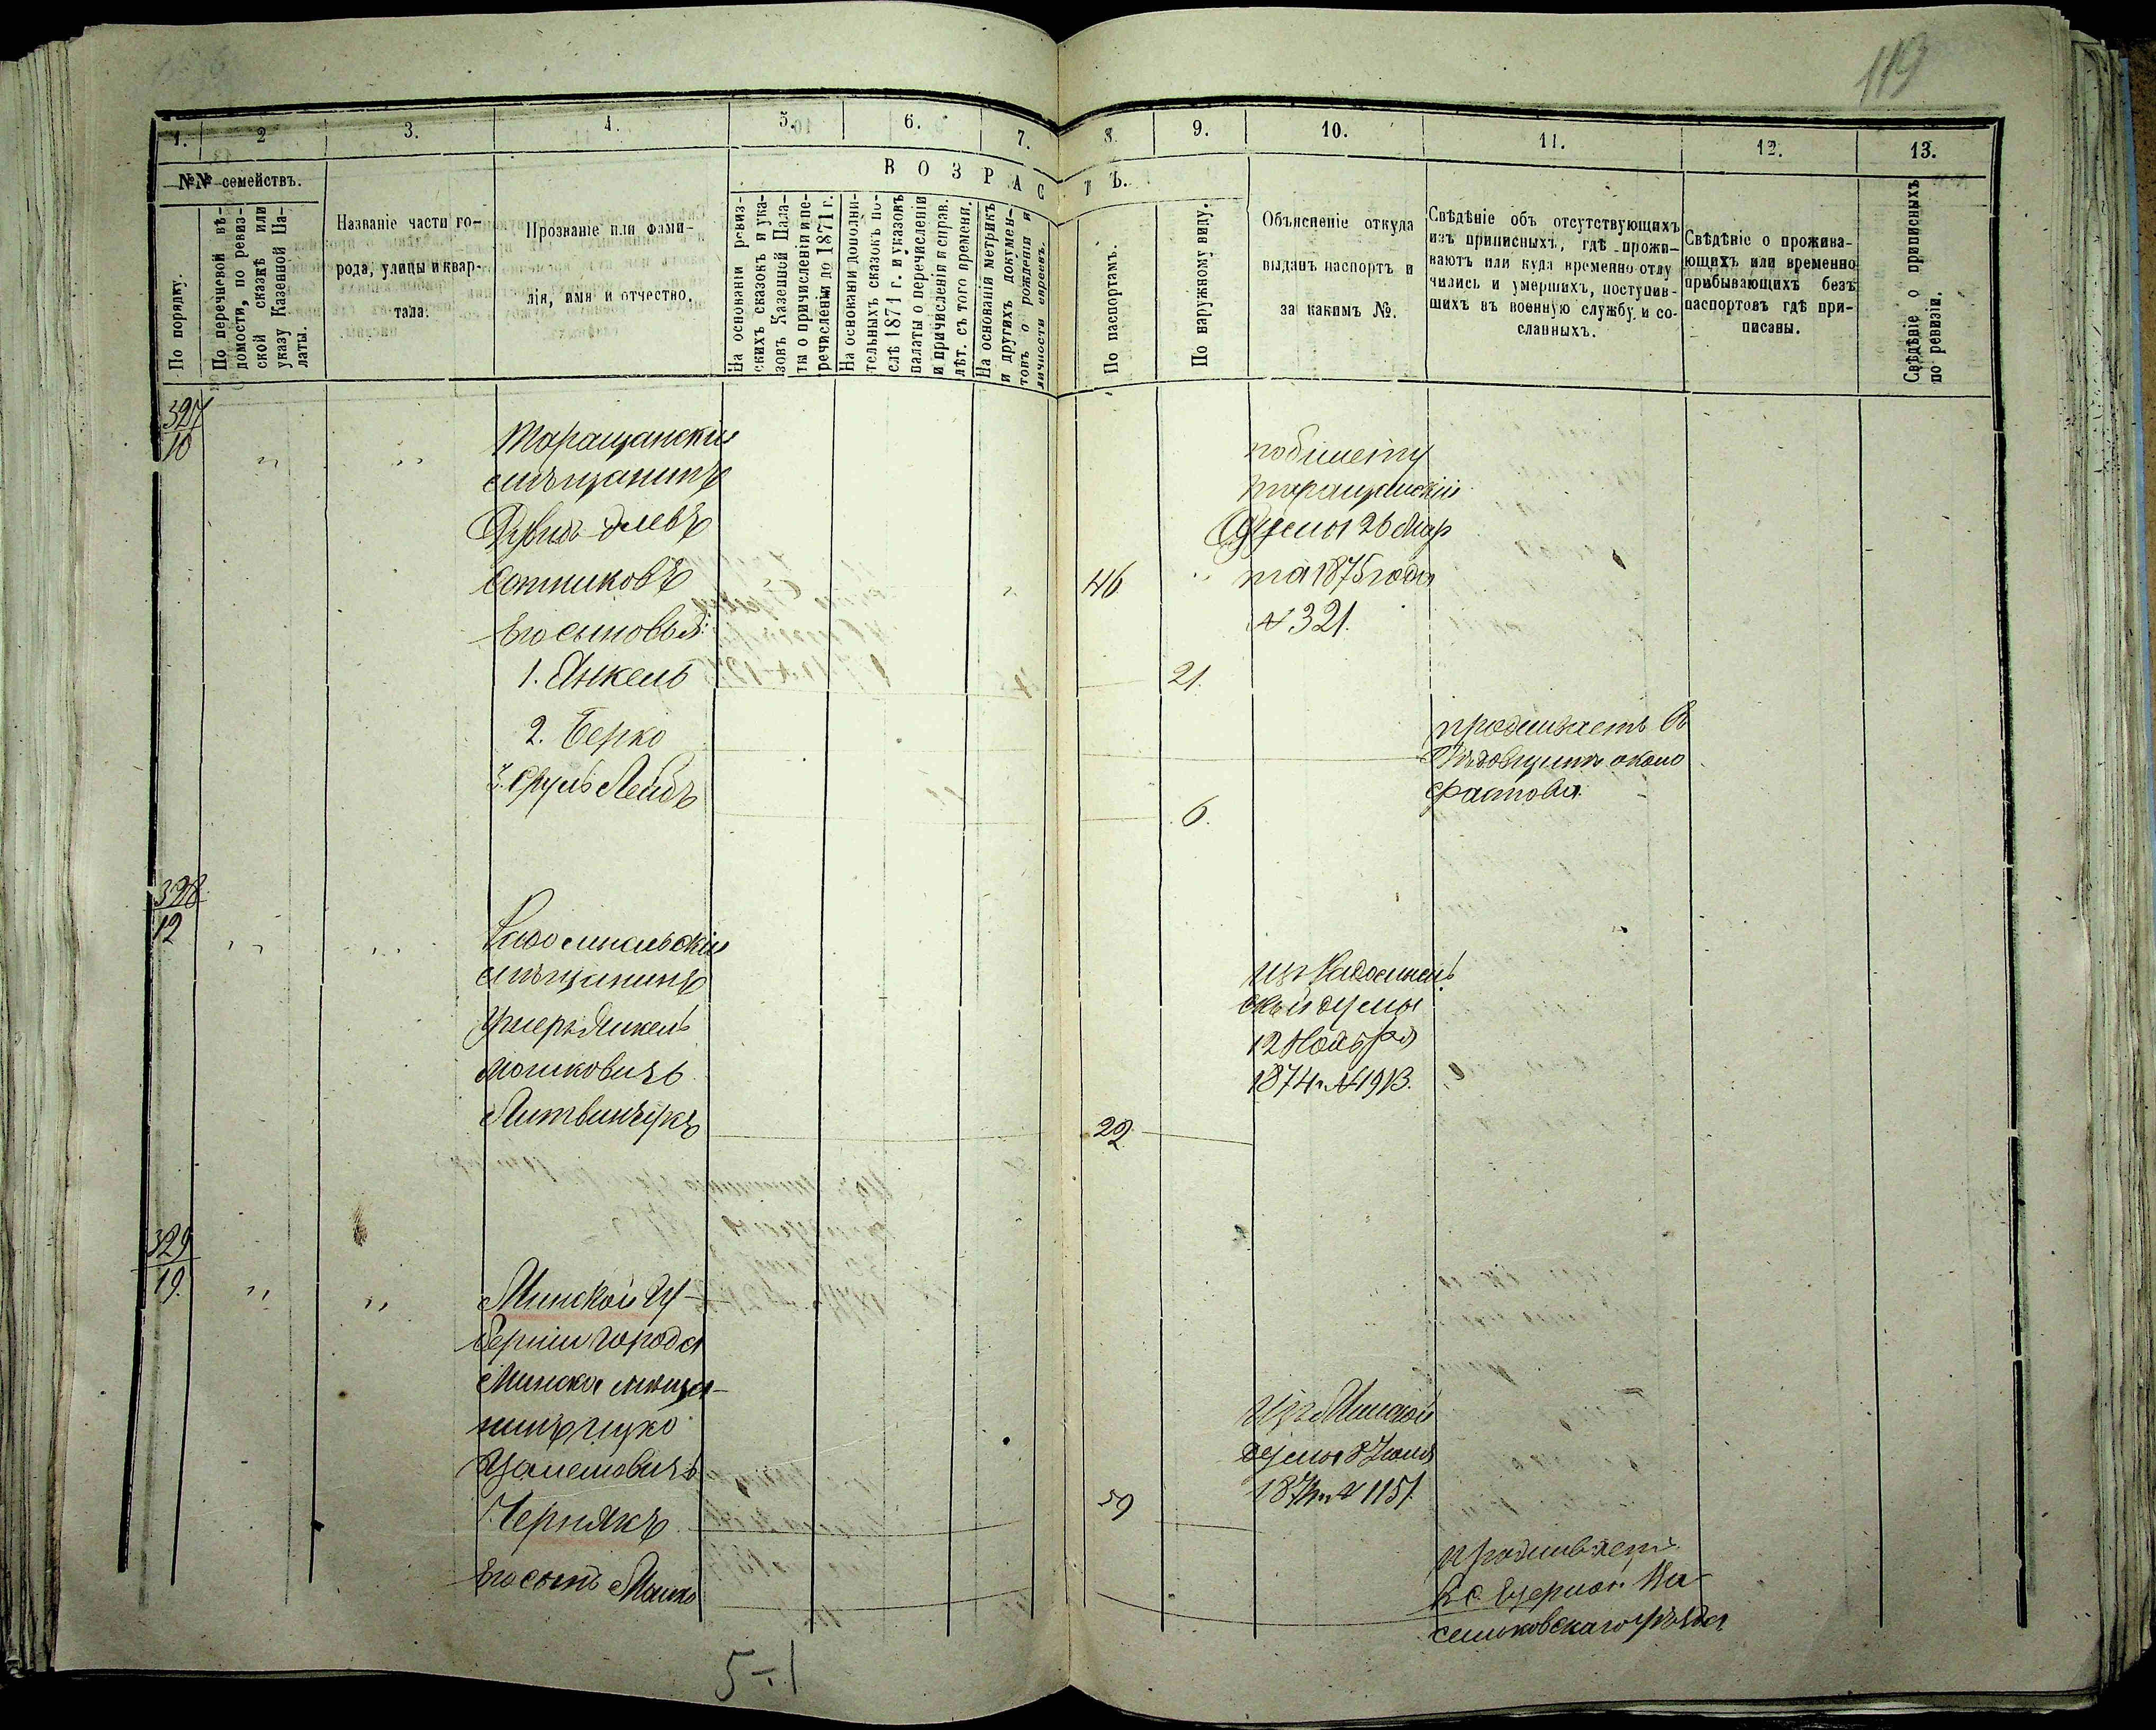 119
1.
2
3.
4.
5.
6.
7.
8.
9.
10.
11.
12.
13.
№№ семействъ.
ВОЗРАСТЪ.
По порядку.
По перечневой вѣ-
домости, по ревиз-
ской сказкѣ или
указу Казенной Па-
латы.
Названіе части го-
рода, улицы и квар-
тала.
Прозваніе или фами-
лія, имя и отчество.
На основаніи ревиз-
скихъ сказокъ и ука-
зовъ Казенной Пала-
ты о причисленіи и пе-
речисленіи до 1871 г.
На основаніи дополни-
тельныхъ сказокъ по-
слѣ 1871 г. и указовъ
палаты о перечисленіи
и причисленія и справ.
лѣт. съ того времени.
На основаніи метрикъ
и другихъ докумен-
товъ о рожденіи и
личности евреевъ.
По паспортамъ.
По наружному виду.
Объясненіе откуда
выданъ паспортъ и
за какимъ №.
Свѣдѣніе объ отсутствующихъ
изъ приписныхъ, гдѣ прожи-
ваютъ или куда временно отлу
чились и умершихъ, поступив-
шихъ въ военную службу и со-
сланныхъ.
Свѣдѣніе о прожива-
ющихъ или временно
прибывающихъ безъ
паспортовъ гдѣ при-
писаны.
Свѣдѣніе о приписныхъ
по ревизіи.
327
10
Таращанскій
мѣщанинъ
Сотниковъ
46
Его сыновья:
1. Янкель
21.
2. Берко
3. Сруль Лейбъ
6.
по билету
Таращанскій
Думы 26 Мар
та 1875 года
№ 321.
проживаетъ въ
около
Фастова.
328
12
Радомысльскій
мѣщанинъ
Янкель
Мошковичъ
Литвинчукъ
22
изъ Радомысль
ской думы
12 Ноября
1874 г. № 1913.
329
19.
Минской Гу-
берніи города
Минска мѣща-
нинъ Ицко
Черникъ
59
Его сынъ Мошко
Изъ Минской
думы 8 Іюля
№ 1151.
проживаетъ
въ с. Ва-
сильковскаго уѣзда
5-1